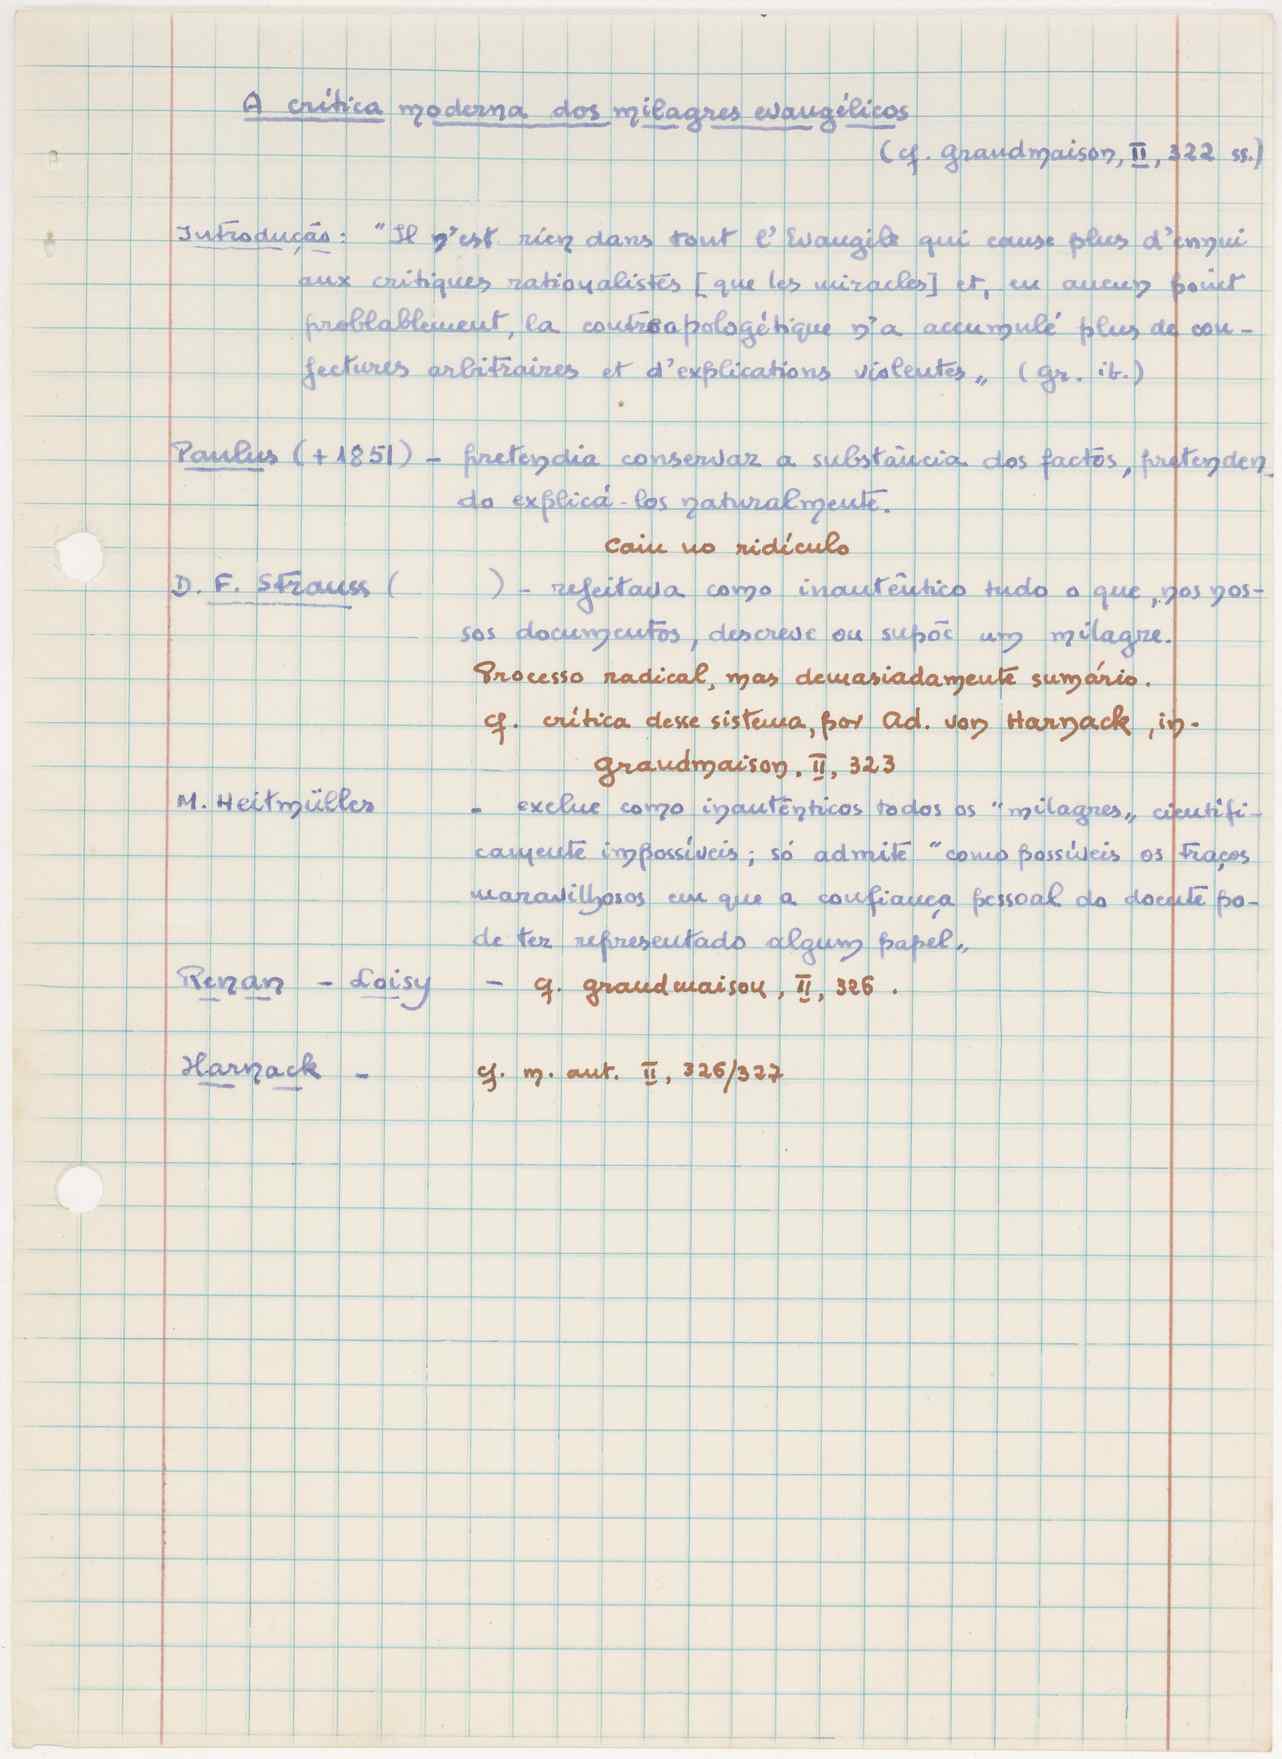 A crítica moderna dos milagres evangélicos
(cf. Grandmaison, II, 322 ss.)
Introdução: "Il n'est rien dans tout l'Évangile qui cause plus d'ennui
aux critiques rationalistes [que les miracles] et, en aucun point
problablement, la contreapologétique n'a accumulé plus de con-
jectures arbitraires et d'explications violentes„ (Gr. ib.)
Paulus (+1851) - pretendia conservar a substância dos factos, pretenden_
do explicá-los naturalmente.
Caiu no ridículo
D. F. Strauss ( ) - rejeitava como inautêntico tudo o que, nos nos-
sos documentos, descreve ou supõe um milagre.
Processo radical, mas demasiadamente sumário.
Cf. crítica desse sistema, por Ad. von Harnack, in.
Grandmaison, II, 323
M. Heitmüller - exclue como inautênticos todos os "milagres„ cientifi-
camente impossíveis; só admite "como possíveis os traços
maravilhosos em que a confiança pessoal do doente po-
de ter representado algum papel„
Renan - Loisy - cf. Grandmaison, II, 326.
Harnack - cf. m. aut. II, 326/327